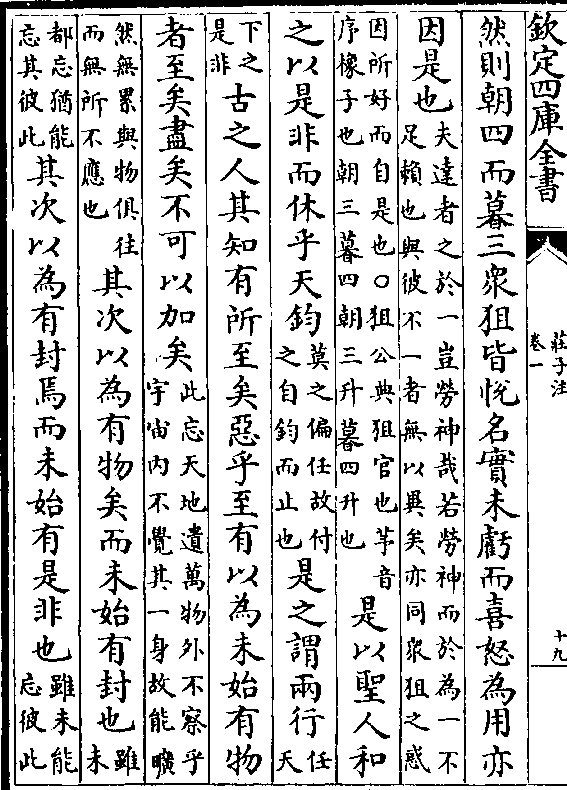 欽定四庫全書
莊子注
卷一
十九
然則朝四而暮三衆狙皆悦名實未虧而喜怒為用亦
因是也
夫達者之於一豈勞神哉若勞神而於為一不
足賴也與彼不一者無以異矣亦同衆狙之惑
因所好而自是也〇狙公典狙官也芧音
序橡子也朝三暮四朝三升暮四升也
是以聖人和
之以是非而休乎天鈞
莫之偏任故付
之自鈞而止也
是之謂兩行
任
天
下之
是非
古之人其知有所至矣惡乎至有以為未始有物
者至矣盡矣不可以加矣
此忘天地遺萬物外不察乎
宇宙内不覺其一身故能曠
然無累與物俱往
而無所不應也
其次以為有物矣而未始有封也
雖
未
都忘猶能
忘其彼此
其次以為有封焉而未始有是非也
雖未能
忘彼此